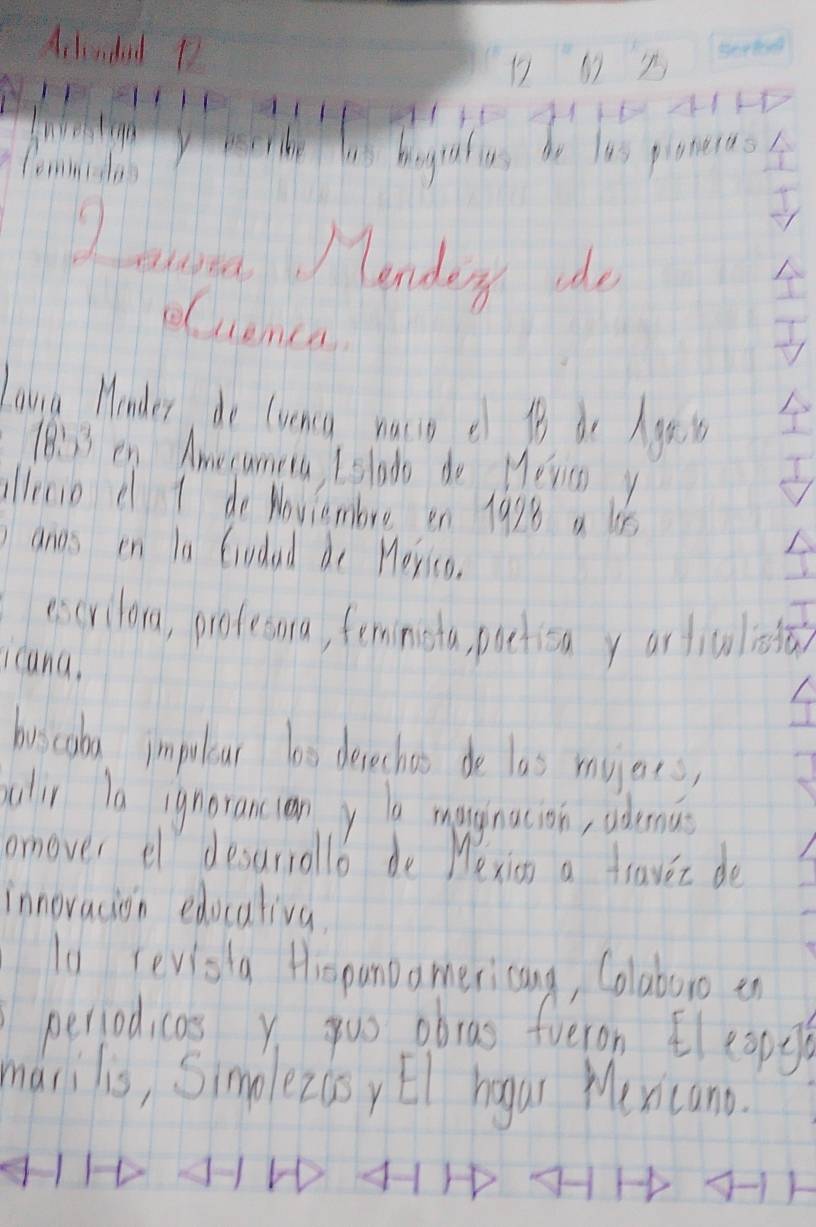 Actividad 12
12 02 25
Investiga y escribe las biografias de las pioneras
feministas
Laura Mendéz de
Cuenca.
Laura Mendez de Cuenca nacio el 18 de Agosto
1853 en Amecameca, Estado de México y
allecio el 1 de Noviembre en 1928 a los
años en la Ciudad de México.
escritora, profesora, feminista, poetisa y articulista
icana.
buscaba impulsar los derechos de las mujeres,
batir la ignorancian y la marginación, además
omover el desarrollo de México a travéz de
innovación educativa.
la revista Hispanoamericana, Colaboro en
periodicos y sus obras fueron El espejo
marilis, Simplezas y El hogar Mexicano.